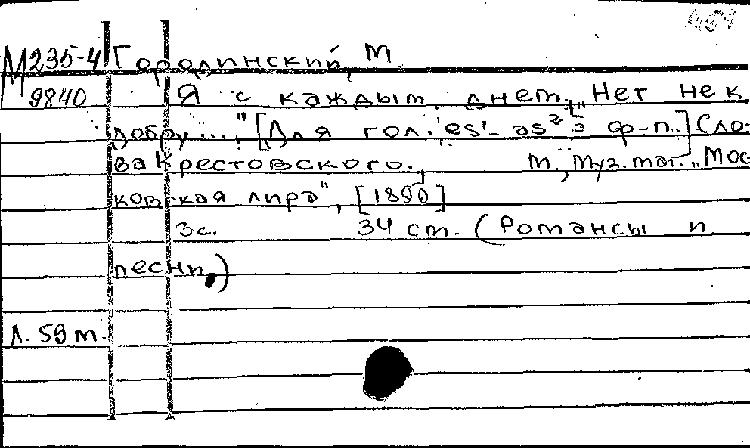 М235-4 Городинский, М
9840 Я с каждым днем, „Нет нек
добру...," [Для гол. es¹- as² с ф-п.] Сло-
ва Крестовского. М., Муз. маг. „Мос-
ковская лира", [1890]
3с. 34 см. (Романсы и
песни.)
Л. 59 м.